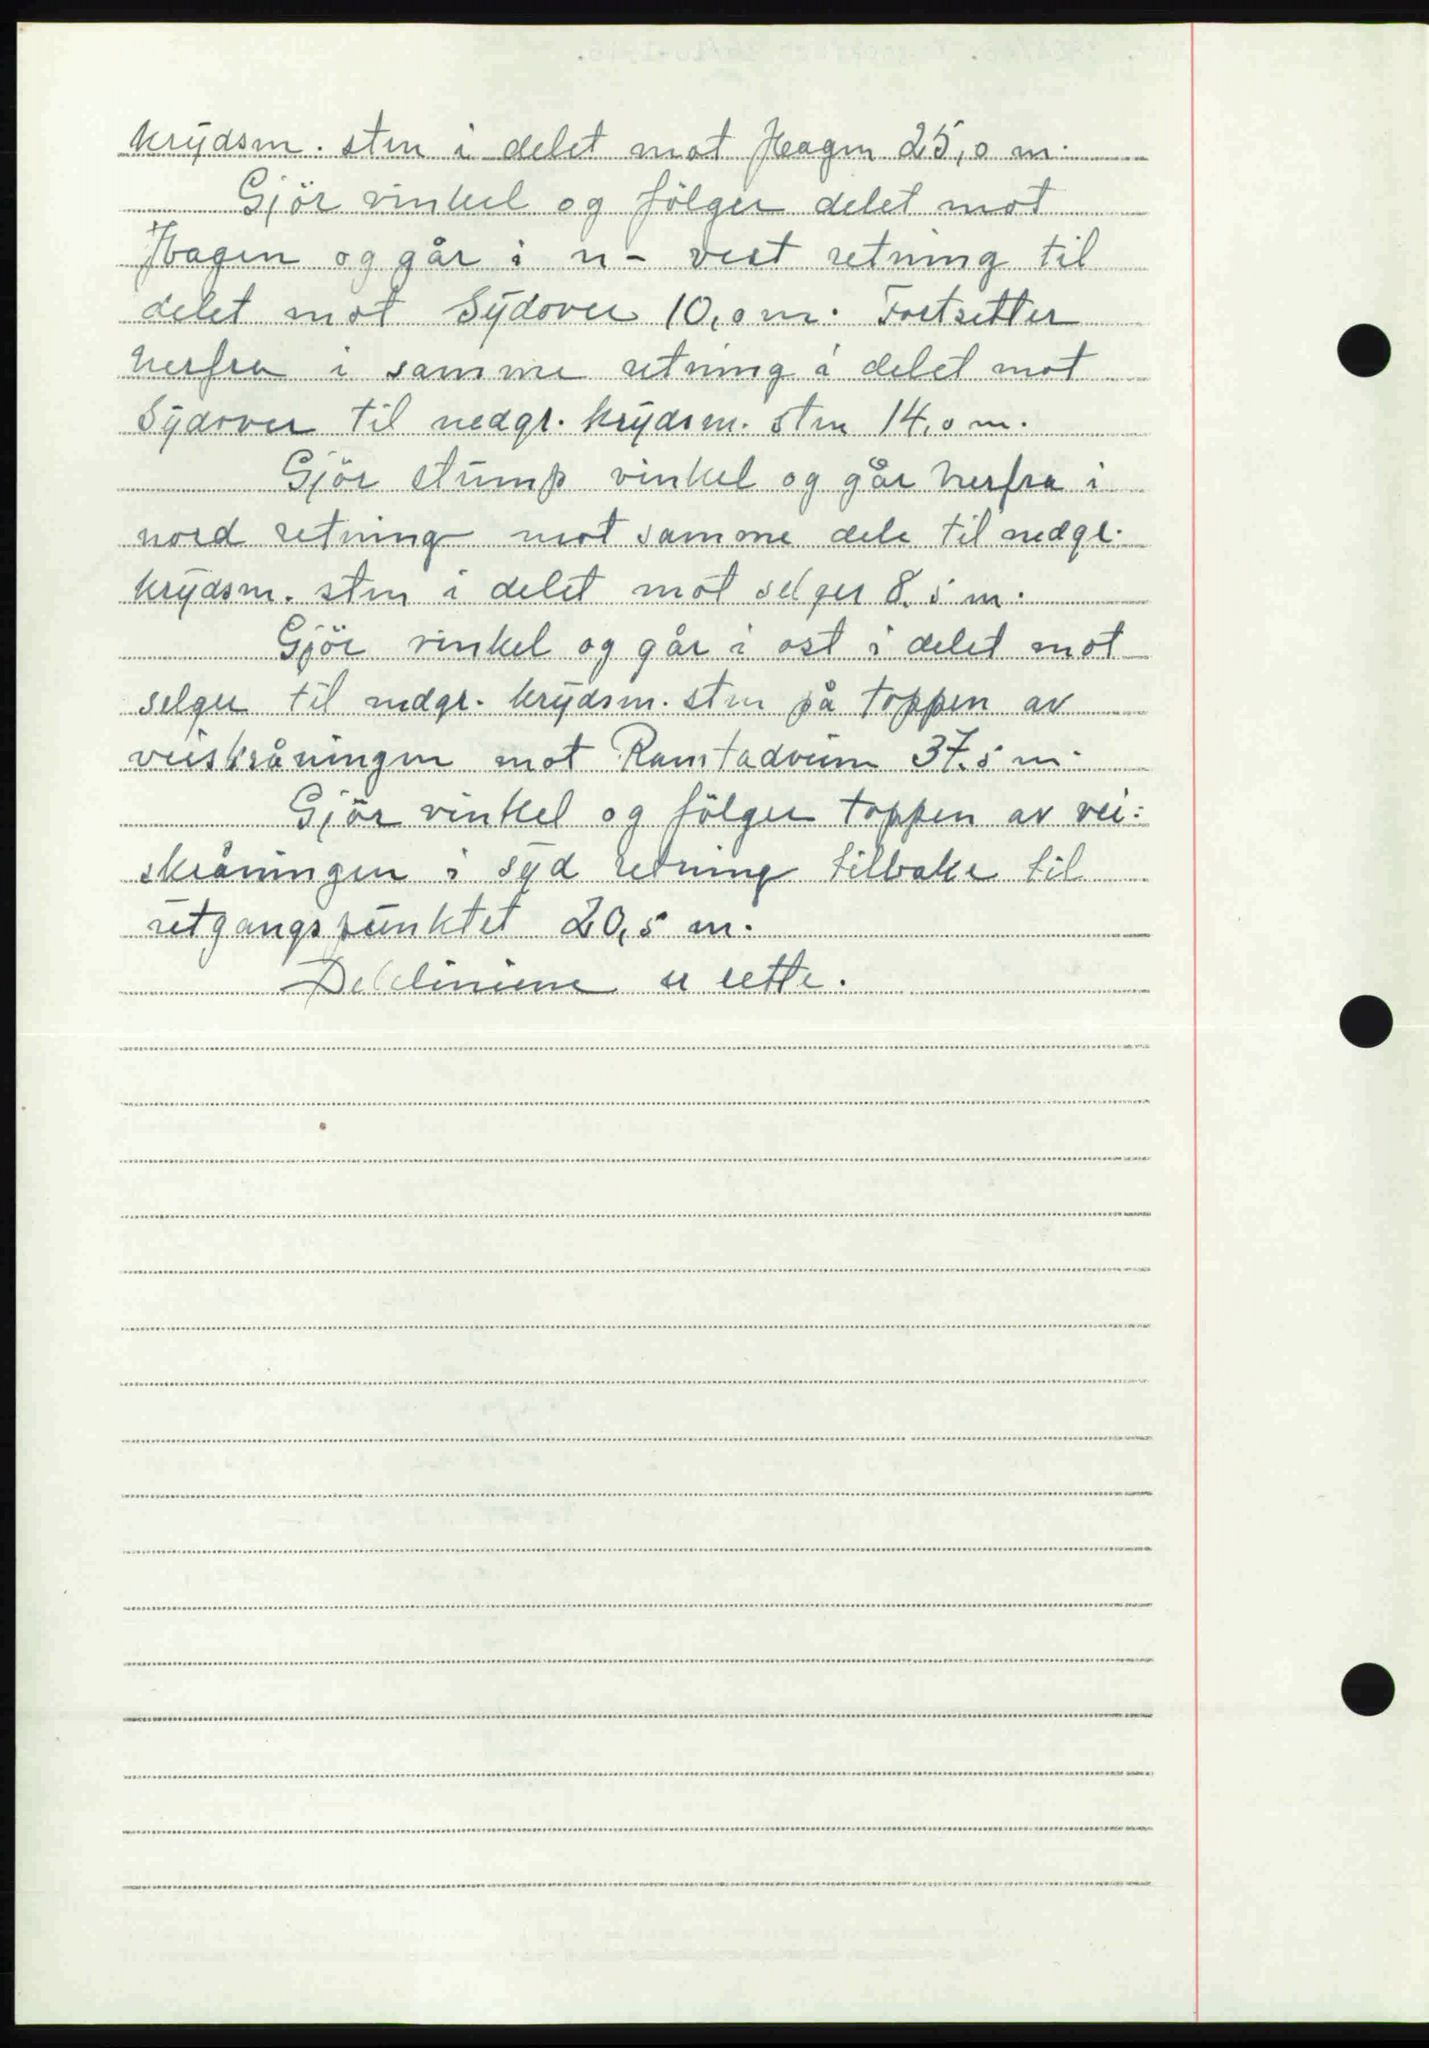 krydsm. sten i delet mot Hagen 25,0 m.
Gjör vinkel og fölger delet mot
Hagen og går i n- vest retning til
delet mot Sydover 10,0 m. Fortsetter
herfra i samme retning i delet mot
Sydover til nedgr. krydsm. sten 14,0 m.
Gjör stump vinkel og går herfra i
nord retning mot samme dele til nedgr.
krydsm. sten i delet mot selger 8,5 m.
Gjör vinkel og går i ost i delet mot
selger til nedgr. krydsm. sten på toppen av
veiskråningen mot Ramstadveien 37,5 m.
Gjör vinkel og fölger toppen av vei:
skråningen i syd retning tilbake til
utgangspunktet 20,5 m.
Delelinierne er rette.